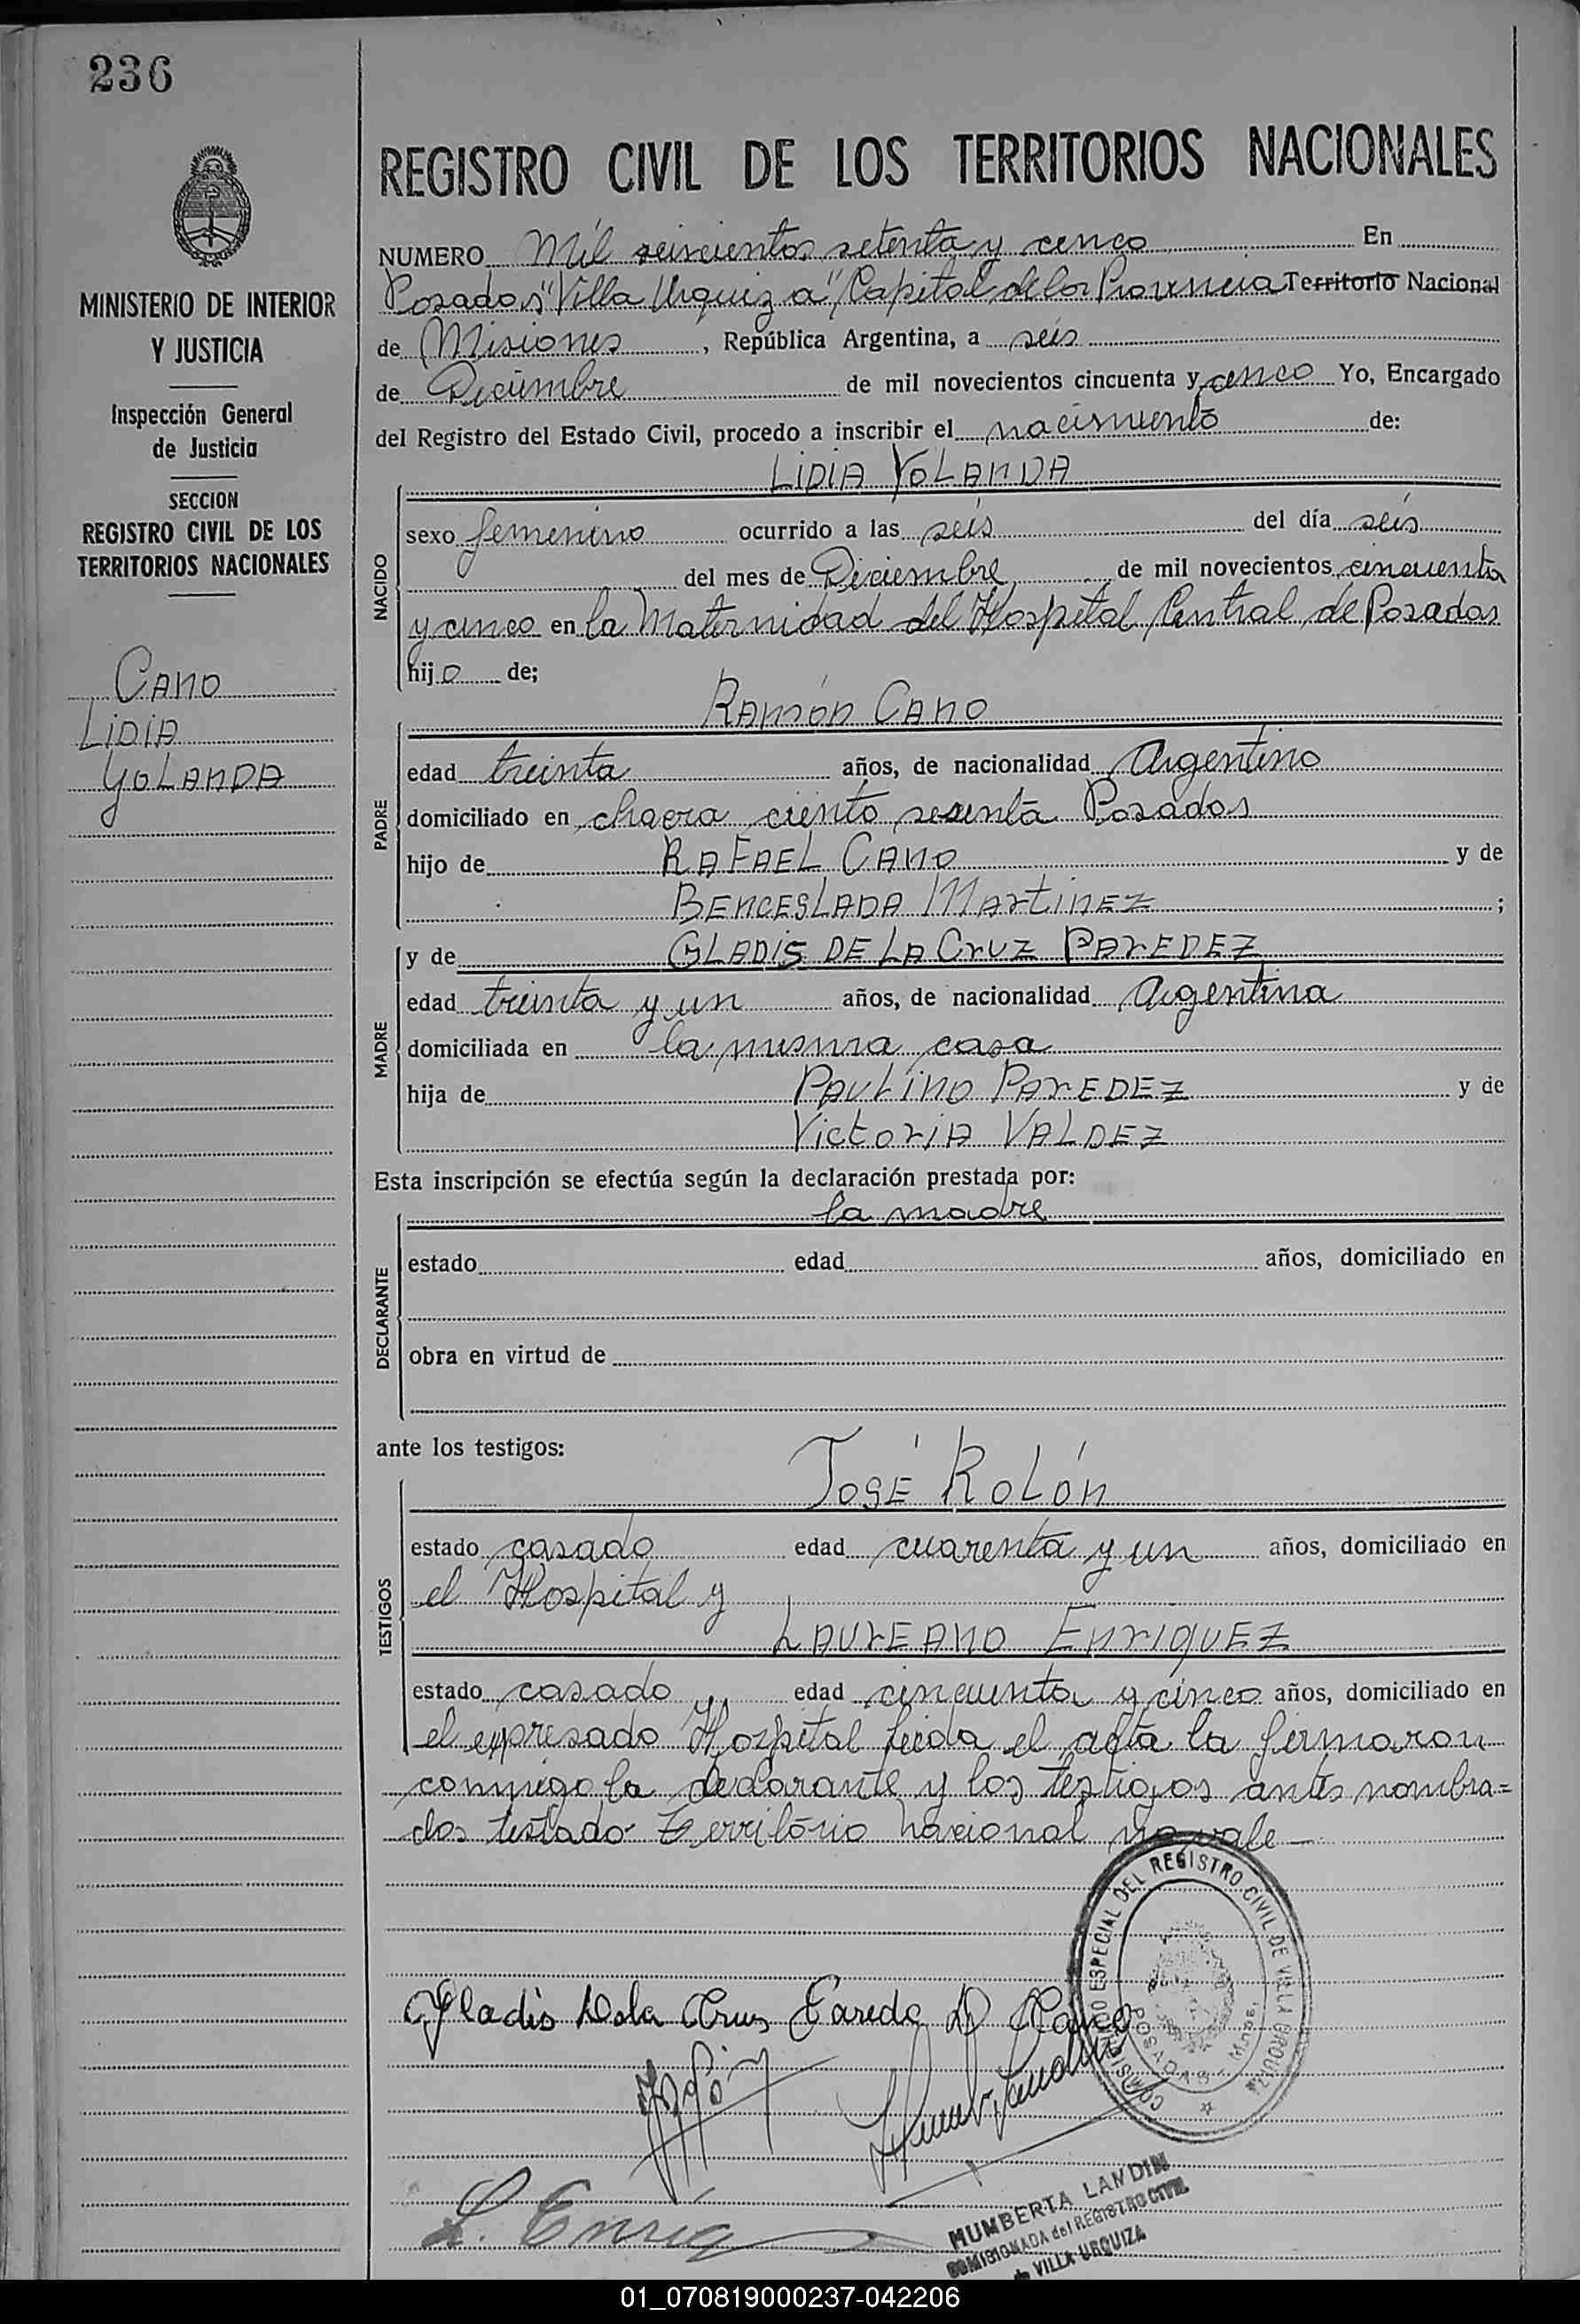 236
MINISTERIO DE INTERIOR
Y JUSTICIA
Inspección General
de Justicia
SECCION
REGISTRO CIVIL DE LOS
TERRITORIOS NACIONALES
CANO
LIDIA
YOLANDA
REGISTRO CIVIL DE LOS TERRITORIOS NACIONALES
NUMERO Mil seiscientos setenta y cinco En
Posadas "Villa Urquiza" Capital de la Provincia Territorio Nacional
de Misiones, República Argentina, a seis
de Diciembre de mil novecientos cincuenta y cinco Yo, Encargado
del Registro del Estado Civil, procedo a inscribir el nacimiento de:
LIDIA YOLANDA
NACIDO
sexo femenino ocurrido a las seis del día seis
del mes de Diciembre de mil novecientos cincuenta
y cinco en la Maternidad del Hospital Central de Posadas
hijo de;
RAMÓN CANO
PADRE
edad treinta años, de nacionalidad Argentino
domiciliado en chacra ciento sesenta Posadas
hijo de RAFAEL CANO y de
BENCESLADA MARTINEZ ;
MADRE
y de GLADIS DE LA CRUZ PAREDEZ
edad treinta y un años, de nacionalidad Argentina
domiciliada en la misma casa
hija de PAULINO PAREDEZ y de
VICTORIA VALDEZ
Esta inscripción se efectúa según la declaración prestada por:
la madre
DECLARANTE
estado edad años, domiciliado en
obra en virtud de
ante los testigos:
JOSÉ ROLÓN
TESTIGOS
estado casado edad cuarenta y un años, domiciliado en
el Hospital y
LAUREANO ENRIQUEZ
estado casado edad cincuenta y cinco años, domiciliado en
el expresado Hospital leida el acta la firmaron
conmigo la declarante y los testigos antes nombra=
dos testado Territorio Nacional no vale
COMISIONADO ESPECIAL DEL REGISTRO CIVIL DE VILLA URQUIZA
POSADAS - Mnes.
Gladis Dela Crus Parede D Cano
L. Enriq
HUMBERTA LANDIN
COMISIONADA del REGISTRO CIVIL
de VILLA URQUIZA
01_070819000237-042206